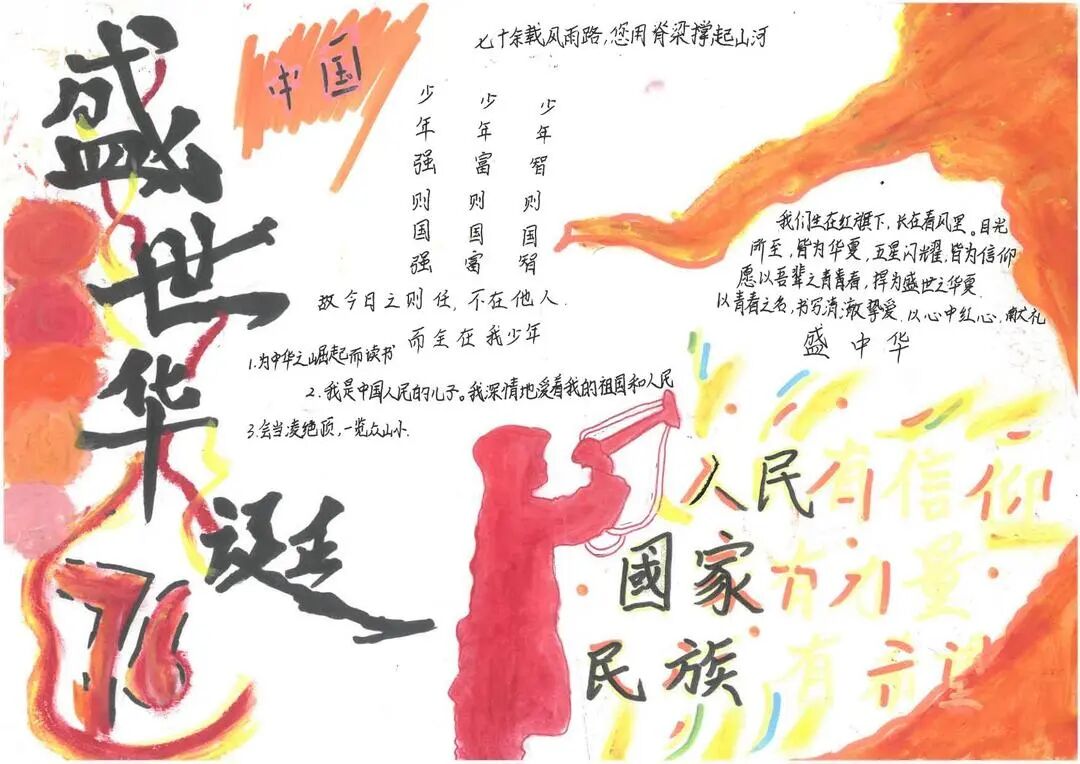 盛世华诞
76
中国
七十余载风雨路,您用脊梁撑起山河
少年智则国智
少年富则国富
少年强则国强
故今日之则任,不在他人.
而全在我少年
1.为中华之崛起而读书
2.我是中国人民的儿子。我深情地爱着我的祖国和人民
3.会当凌绝顶,一览众山小.
我们生在红旗下,长在春风里。目光
所至,皆为华夏,五星闪耀,皆为信仰
愿以吾辈之青青春,捍为盛世之华夏.
以青春之名,书写清澈挚爱,以心中红心,献礼
盛中华
人民有信仰
國家有力量
民族有希望